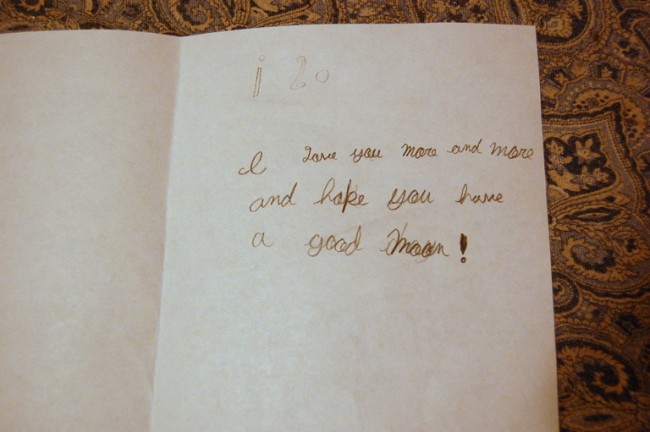 i Lo
I Love you more and more
and hope you have
a good moon!